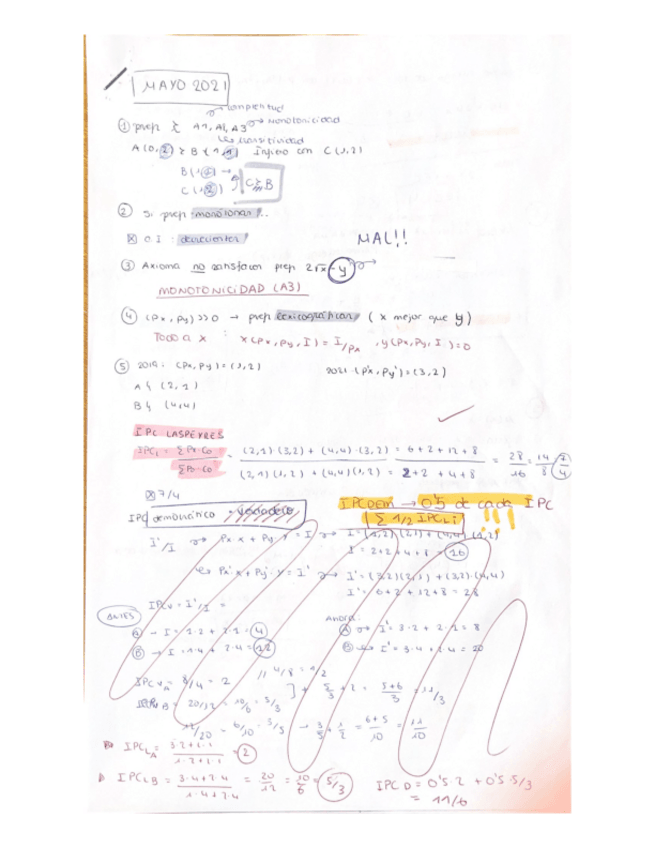 MAYO 2021
completitud
① prep ≿ A1, A2, A3 → Monotonicidad
transitividad
A(0,2) ≿ B(1,1) Infiero con C(1,2)
B(1,1) →
C(1,2) C ≿ B
② Si prep monótonas!..
☒ C.I: decrecientes!
MAL!!
③ Axioma no satisfacen prep 2√x - y →
MONOTONICIDAD (A3)
④ (Px, Py) >> 0 → prep lexicográficas (x mejor que y)
Todo a x : x(Px, Py, I) = I/Px , y(Px, Py, I) = 0
⑤ 2019: (Px, Py) = (1,2) 2021: (P'x, Py') = (3,2)
A ↳ (2,1)
B ↳ (4,4)
IPC LASPEYRES
IPCL = ΣP1·C0 / ΣP0·C0 = (2,1)(3,2) + (4,4)·(3,2) / (2,1)(1,2) + (4,4)(1,2) = 6+2+12+8 / 2+2+4+8 = 28/16 = 14/8 = 7/4
☒ 7/4
IPC democrático - verdadero
IPCDEM → 0'5 de cada IPC
Σ 1/2 IPCLi !!!
I'/I → Px x + Py · y = I → I = (1,2)(2,1) + (4,4)(1,2)
I = 2+2+4+8 = 16
↳ Px' x + Py' · y = I' → I' = (3,2)(2,1) + (3,2)·(4,4)
I' = 6+2+12+8 = 28
IPCV = I'/I =
ANTES Ahora:
A → I = 1·2 + 2·1 = 4 A → I' = 3·2 + 2·1 = 8
B → I = 1·4 + 2·4 = 12 B → I' = 3·4 + 2·4 = 20
// 4/8 = 1/2
IPCVA = 8/4 = 2
B = 20/12 = 10/6 = 5/3 ] + 5/3 + 2 = 5+6/3 = 11/3
12/20 = 6/10 = 3/5 → 3/5 + 1/2 = 6+5/10 = 11/10
IPCLA = 3·2+2·1 / 1·2+2·1 = 2
IPCLB = 3·4+2·4 / 1·4+2·4 = 20/12 = 10/6 = 5/3 IPCD = 0'5·2 + 0'5·5/3
= 11/6